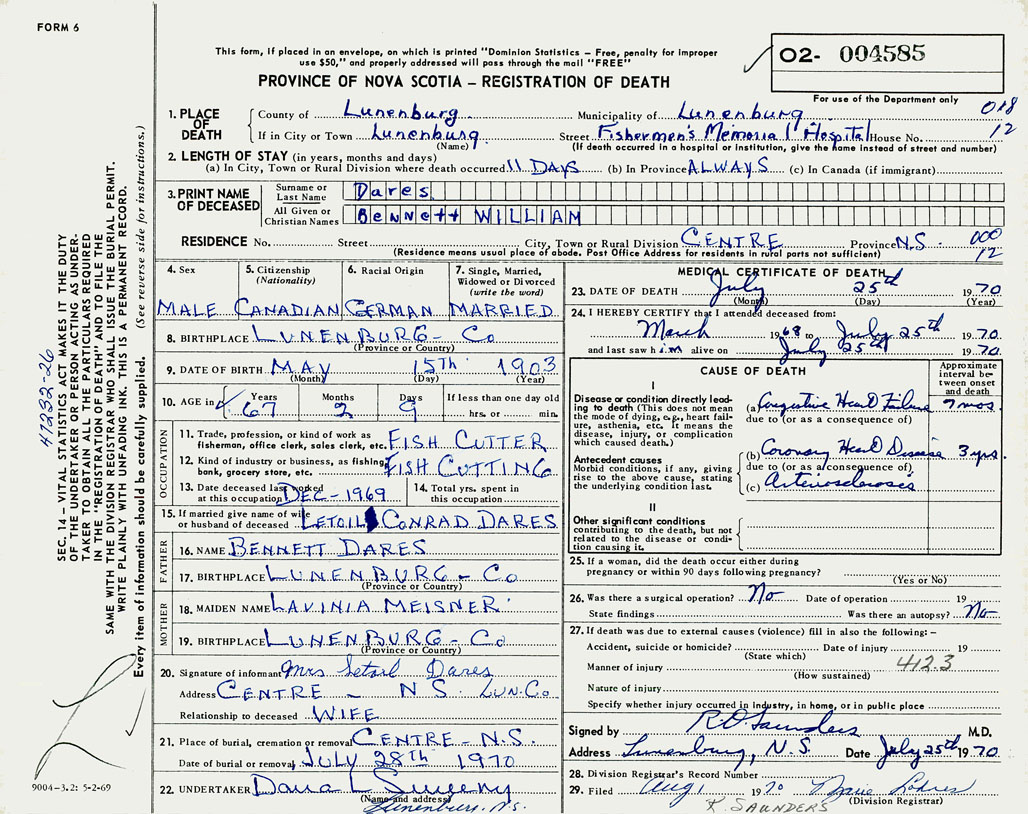 FORM 6
This form, if placed in an envelope, on which is printed "Dominion Statistics – Free, penalty for improper
use $50," and properly addressed will pass through the mail "FREE"
PROVINCE OF NOVA SCOTIA – REGISTRATION OF DEATH
O2- 004585
For use of the Department only
018
12
1. PLACE OF DEATH
County of Lunenburg Municipality of Lunenburg
If in City or Town Lunenburg Street Fishermen's Memorial Hospital House No.
(Name) (If death occurred in a hospital or institution, give the name instead of street and number)
2. LENGTH OF STAY (in years, months and days)
(a) In City, Town or Rural Division where death occurred 11 DAYS (b) In Province ALWAYS (c) In Canada (if immigrant)
3. PRINT NAME OF DECEASED
Surname or Last Name Dares
All Given or Christian Names Bennett WILLIAM
RESIDENCE No. Street City, Town or Rural Division CENTRE Province N.S. 000
(Residence means usual place of abode. Post Office Address for residents in rural parts not sufficient) 12
4. Sex 5. Citizenship (Nationality) 6. Racial Origin 7. Single, Married, Widowed or Divorced (write the word)
MALE CANADIAN GERMAN MARRIED
8. BIRTHPLACE LUNENBURG - Co
(Province or Country)
9. DATE OF BIRTH MAY 15th 1903
(Month) (Day) (Year)
10. AGE in Years Months Days If less than one day old
67 2 9 hrs. or min.
OCCUPATION
11. Trade, profession, or kind of work as
fisherman, office clerk, sales clerk, etc. FISH CUTTER
12. Kind of industry or business, as fishing,
bank, grocery store, etc. FISH CUTTING
13. Date deceased last worked
at this occupation DEC - 1969
14. Total yrs. spent in
this occupation
15. If married give name of wife
or husband of deceased LETOIL CONRAD DARES
FATHER
16. NAME BENNETT DARES
17. BIRTHPLACE LUNENBURG - Co
(Province or Country)
MOTHER
18. MAIDEN NAME LAVINIA MEISNER
19. BIRTHPLACE LUNENBURG - Co
(Province or Country)
20. Signature of informant Mrs Letoil Dares
Address CENTRE - N S. LUN. Co
Relationship to deceased WIFE
21. Place of burial, cremation or removal CENTRE - N.S.
Date of burial or removal JULY 28th 1970
22. UNDERTAKER Dana L Sweeny
(Name and address)
Lunenburg, N.S.
MEDICAL CERTIFICATE OF DEATH
23. DATE OF DEATH July 25th 1970
(Month) (Day) (Year)
24. I HEREBY CERTIFY that I attended deceased from:
March 1968 to July 25th 1970
and last saw him alive on July 25th 1970
CAUSE OF DEATH
Approximate interval between onset and death
I
Disease or condition directly leading to death (This does not
mean the mode of dying, e.g., heart failure, asthenia, etc. It means the
disease, injury, or complication
which caused death.)
(a) Congestive Heart Failure 7 mos.
due to (or as a consequence of)
Antecedent causes
Morbid conditions, if any, giving
rise to the above cause, stating
the underlying condition last.
(b) Coronary Heart Disease 3 yrs.
due to (or as a consequence of)
(c) Arteriosclerosis
II
Other significant conditions
contributing to the death, but not
related to the disease or condition
causing it.
25. If a woman, did the death occur either during
pregnancy or within 90 days following pregnancy?
(Yes or No)
26. Was there a surgical operation? No Date of operation 19
State findings Was there an autopsy? No
27. If death was due to external causes (violence) fill in also the following: –
Accident, suicide or homicide? Date of injury 19
(State which)
412.3
Manner of injury
(How sustained)
Nature of injury
Specify whether injury occurred in industry, in home, or in public place
Signed by R.O. Saunders M.D.
Address Lunenburg, N.S. Date July 25th 1970
28. Division Registrar's Record Number
29. Filed Aug 1 1970 Marie
(Division Registrar)
R. SAUNDERS
9004-3.2: 5-2-69
47232-26
SEC. 14 – VITAL STATISTICS ACT MAKES IT THE DUTY
OF THE UNDERTAKER OR PERSON ACTING AS UNDERTAKER
TO OBTAIN ALL THE PARTICULARS REQUIRED
IN THE "REGISTRATION OF DEATH" AND TO FILE THE
SAME WITH THE DIVISION REGISTRAR WHO SHALL ISSUE THE BURIAL PERMIT.
WRITE PLAINLY WITH UNFADING INK. THIS IS A PERMANENT RECORD.
Every item of information should be carefully supplied. (See reverse side for instructions.)